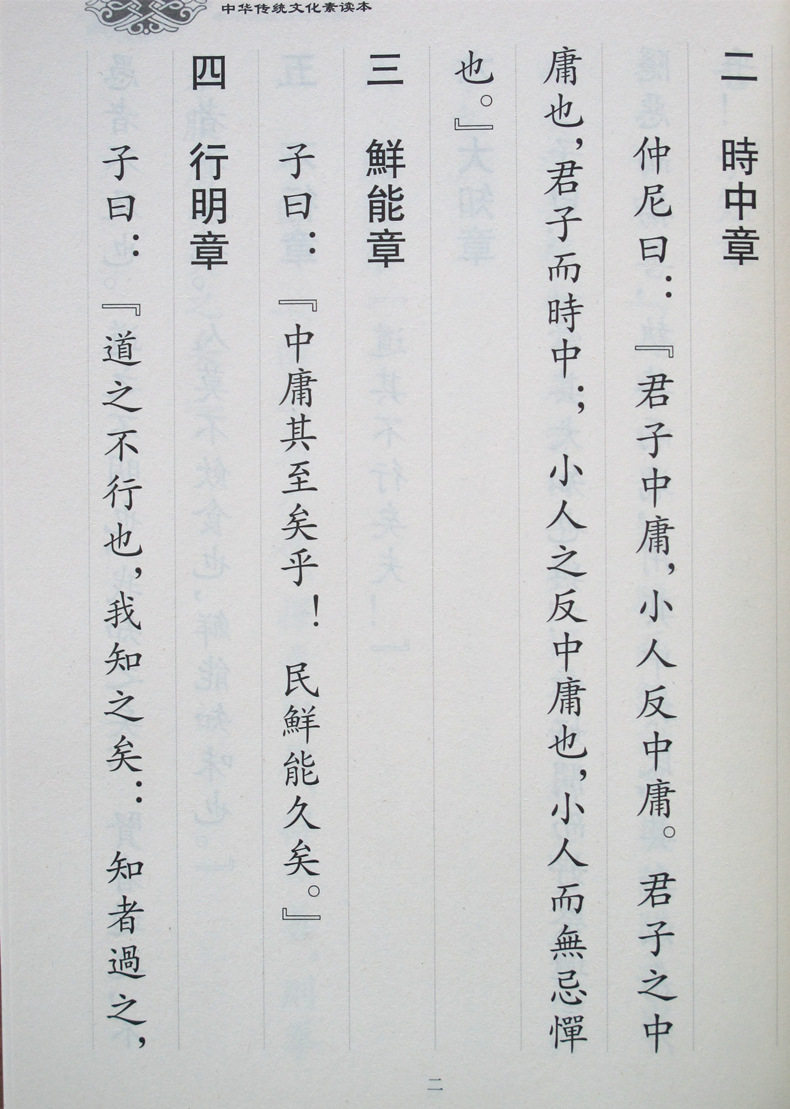 中华传统文化素读本
二 時中章
仲尼曰：『君子中庸，小人反中庸。君子之中
庸也，君子而時中；小人之反中庸也，小人而無忌憚
也。』
三 鮮能章
子曰：『中庸其至矣乎！民鮮能久矣。』
四 行明章
子曰：『道之不行也，我知之矣：知者過之，
二